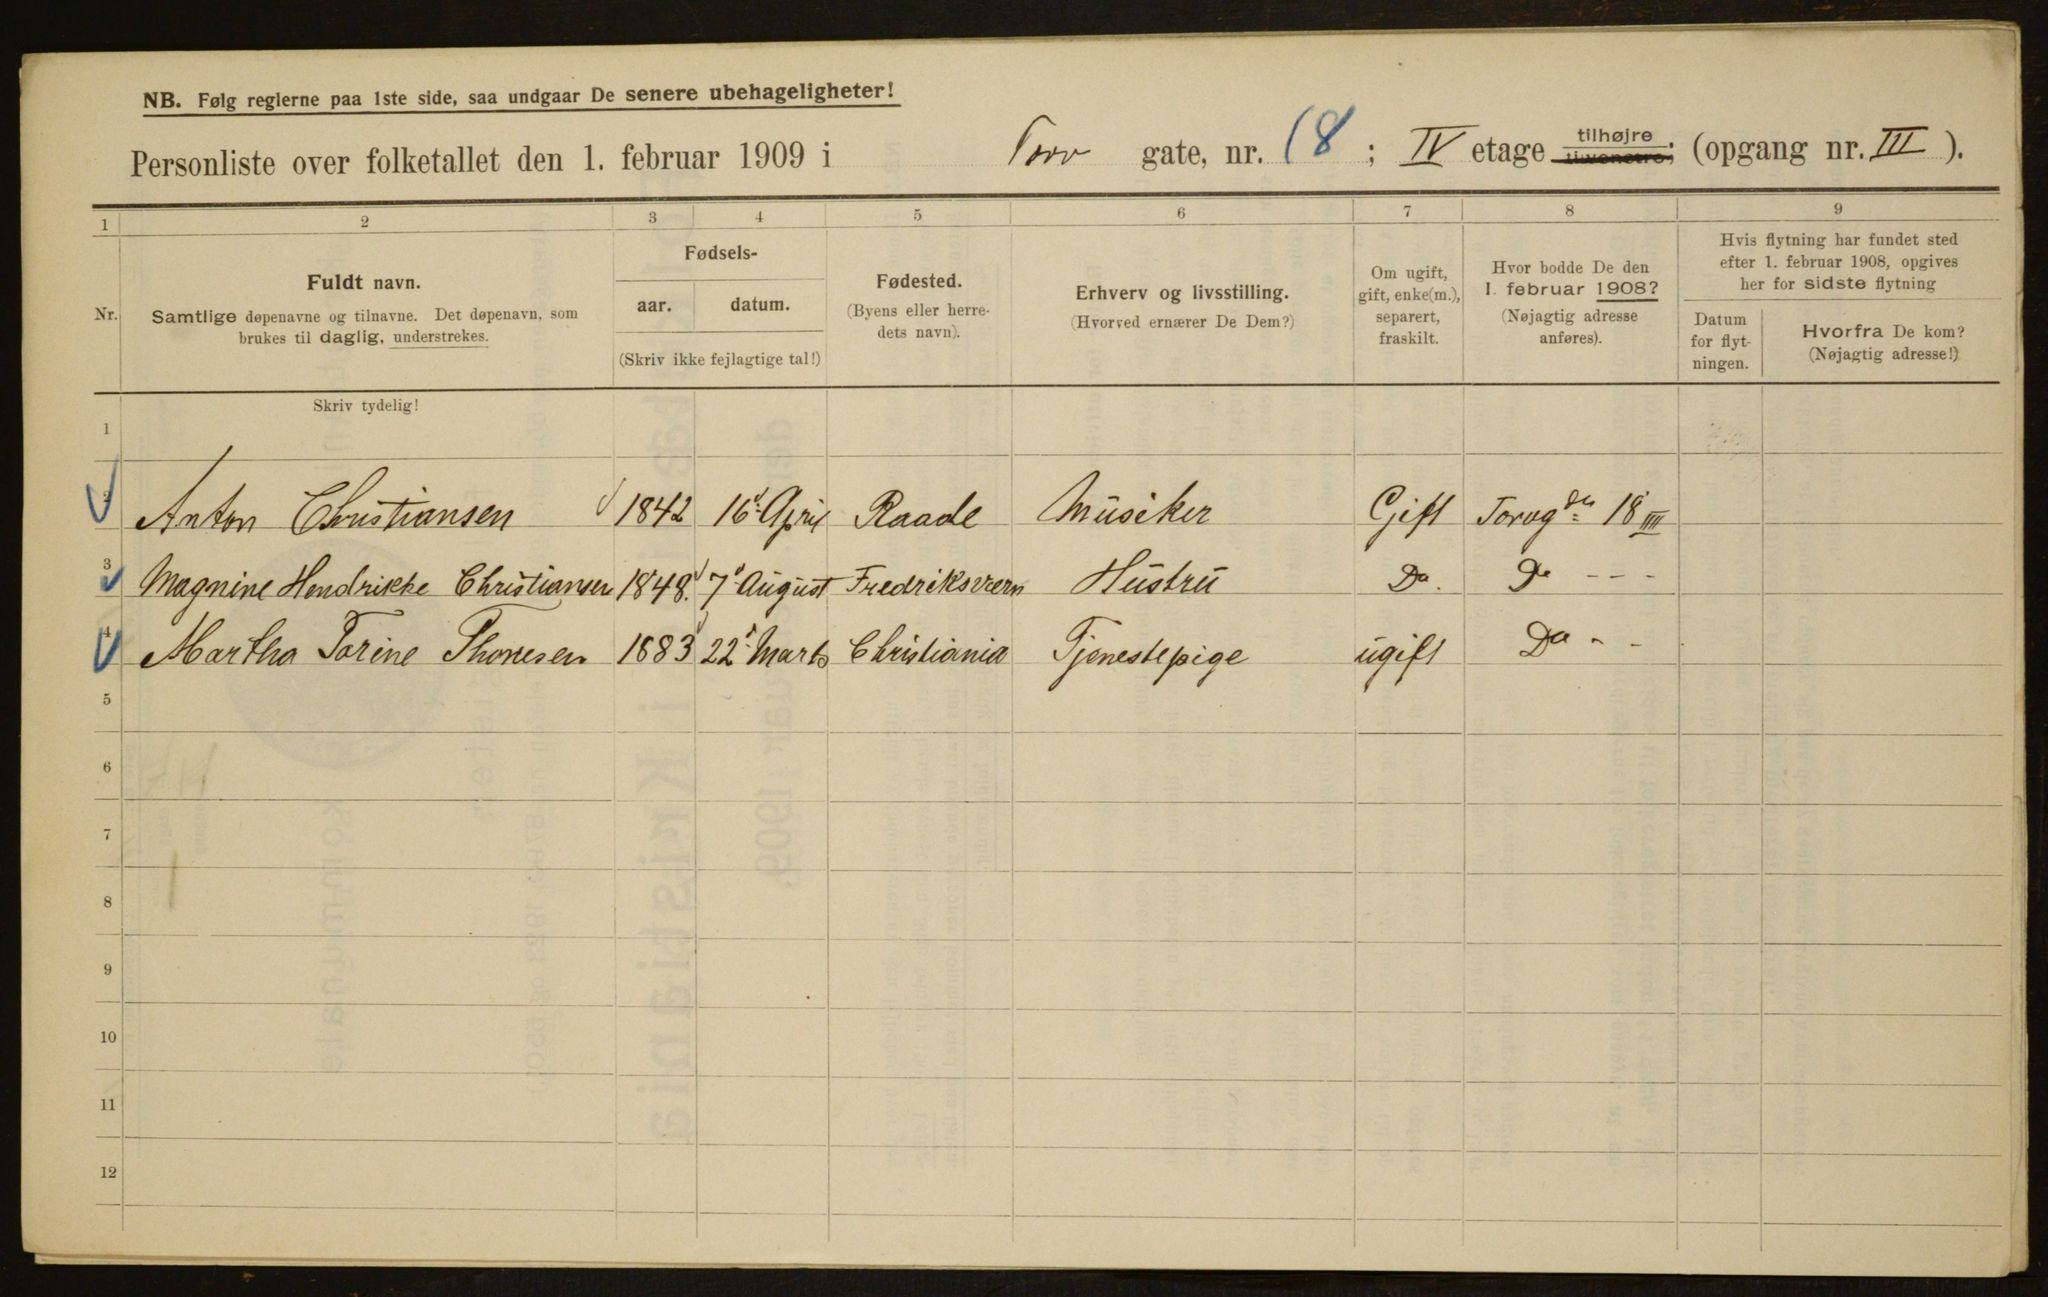 NB. Følg reglerne paa 1ste side, saa undgaar De senere ubehageligheter!
Personliste over folketallet den 1. februar 1909 i Torv gate, nr. 18; IV etage tilhøjre tilvenstre; (opgang nr. III).
1 2 3 4 5 6 7 8 9
Nr.
Fuldt navn.
Samtlige døpenavne og tilnavne. Det døpenavn, som
brukes til daglig, understrekes.
Fødsels-
aar. datum.
(Skriv ikke fejlagtige tal!)
Fødested.
(Byens eller herre-
dets navn).
Erhverv og livsstilling.
(Hvorved ernærer De Dem?)
Om ugift,
gift, enke(m.),
separert,
fraskilt.
Hvor bodde De den
1. februar 1908?
(Nøjagtig adresse
anføres).
Hvis flytning har fundet sted
efter 1. februar 1908, opgives
her for sidste flytning
Datum
for flyt-
ningen.
Hvorfra De kom?
(Nøjagtig adresse!)
Skriv tydelig!
1
2 Anton Christiansen 1842 16d April Raade Musiker Gift 18 IIII
3 Magnine Hendrikke Christiansen 1848. 7d August Fredriksværn Hustru Do. Do - - -
4 Martha Torine Thoresen 1883 22d Marts Christiania Tjenestepige ugift Do - -
5
6
7
8
9
10
11
12